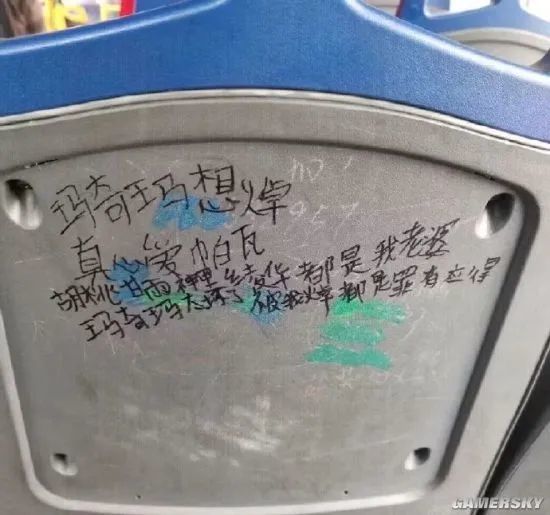 玛奇玛想焯
真心爱帕瓦
胡桃甘雨神里绫华都是我老婆
玛奇玛太坏了被我焯都是罪有应得
GAMERSKY